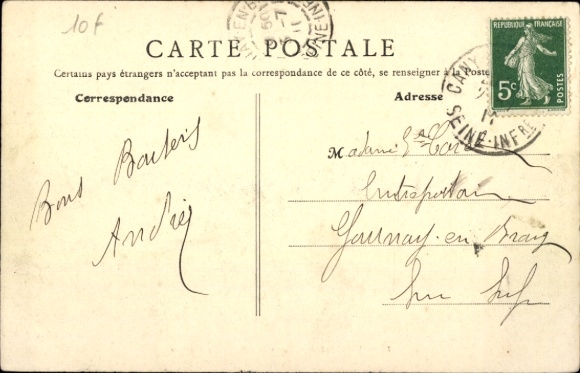 10f
CARTE POSTALE
Certains pays étrangers n'acceptant pas la correspondance de ce côté, se renseigner à la Poste
Correspondance
Adresse
REPUBLIQUE FRANÇAISE
5c
POSTES
CANY
SEINE-INFRE
Bons Baisers
André
Madame
Entrepositaire
Gournay-en-Bray
Sne Infre